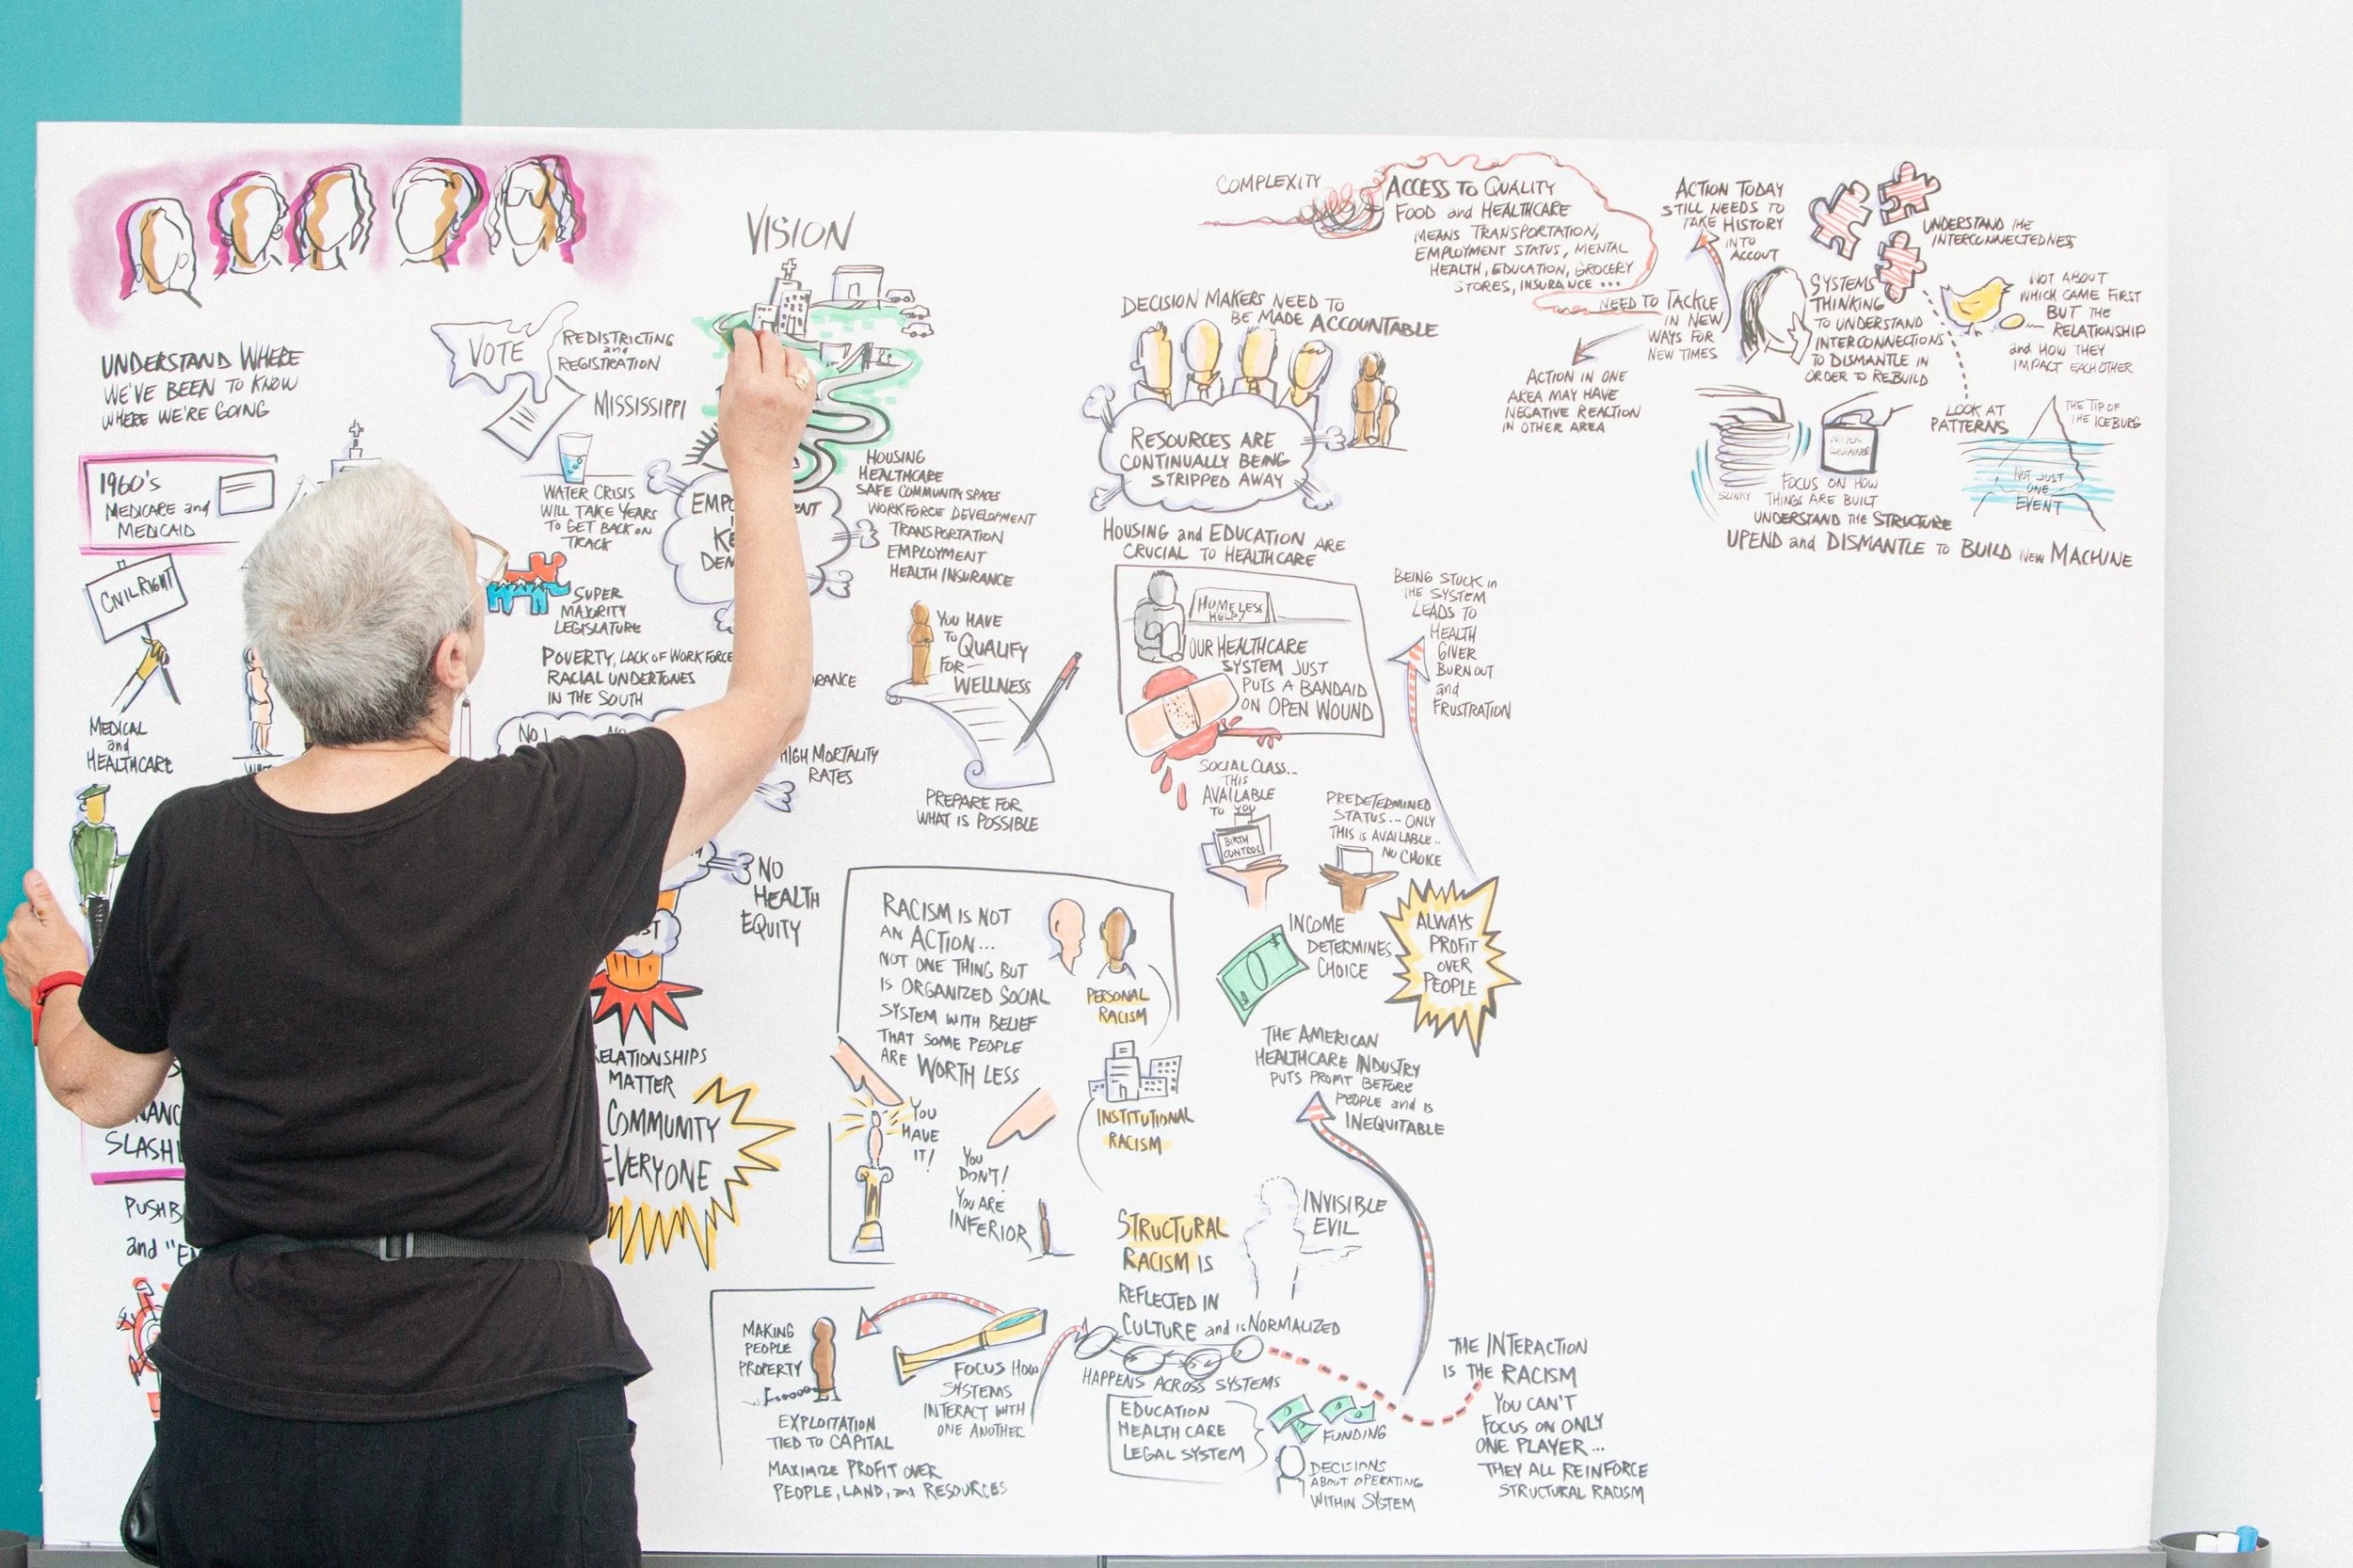 UNDERSTAND WHERE
WE'VE BEEN TO KNOW
WHERE WE'RE GOING
1960's
MEDICARE and
MEDICAID
CIVIL RIGHT
MEDICAL
and
HEALTHCARE
SLASH
PUSH B
and "E
VOTE
REDISTRICTING
and
REGISTRATION
MISSISSIPPI
WATER CRISIS
WILL TAKE YEARS
TO GET BACK ON
TRACK
SUPER
MAJORITY
LEGISLATURE
POVERTY, LACK OF WORK FORCE
RACIAL UNDERTONES
IN THE SOUTH
NO
HIGH MORTALITY
RATES
NO
HEALTH
EQUITY
ELATIONSHIPS
MATTER
COMMUNITY
EVERYONE
VISION
HOUSING
HEALTHCARE
SAFE COMMUNITY SPACES
WORKFORCE DEVELOPMENT
TRANSPORTATION
EMPLOYMENT
HEALTH INSURANCE
YOU HAVE
TO QUALIFY
FOR
WELLNESS
PREPARE FOR
WHAT IS POSSIBLE
RACISM IS NOT
AN ACTION...
NOT ONE THING BUT
IS ORGANIZED SOCIAL
SYSTEM WITH BELIEF
THAT SOME PEOPLE
ARE WORTH LESS
PERSONAL
RACISM
INSTITUTIONAL
RACISM
YOU
HAVE
IT!
YOU
DON'T!
YOU ARE
INFERIOR
STRUCTURAL
RACISM IS
REFLECTED IN
CULTURE and is NORMALIZED
INVISIBLE
EVIL
MAKING
PEOPLE
PROPERTY
EXPLOITATION
TIED TO CAPITAL
MAXIMIZE PROFIT OVER
PEOPLE, LAND, and RESOURCES
FOCUS HOW
SYSTEMS
INTERACT WITH
ONE ANOTHER
HAPPENS ACROSS SYSTEMS
EDUCATION
HEALTH CARE
LEGAL SYSTEM
FUNDING
DECISIONS
ABOUT OPERATING
WITHIN SYSTEM
THE INTERACTION
IS THE RACISM
YOU CAN'T
FOCUS ON ONLY
ONE PLAYER...
THEY ALL REINFORCE
STRUCTURAL RACISM
DECISION MAKERS NEED TO
BE MADE ACCOUNTABLE
RESOURCES ARE
CONTINUALLY BEING
STRIPPED AWAY
HOUSING and EDUCATION ARE
CRUCIAL TO HEALTHCARE
HOMELESS
HELP!
OUR HEALTHCARE
SYSTEM JUST
PUTS A BANDAID
ON OPEN WOUND
BEING STUCK in
THE SYSTEM
LEADS TO
HEALTH
GIVER
BURNOUT
and
FRUSTRATION
SOCIAL CLASS...
THIS
AVAILABLE
TO YOU
BIRTH
CONTROL
PREDETERMINED
STATUS... ONLY
THIS IS AVAILABLE..
NO CHOICE
INCOME
DETERMINES
CHOICE
ALWAYS
PROFIT
OVER
PEOPLE
THE AMERICAN
HEALTHCARE INDUSTRY
PUTS PROFIT BEFORE
PEOPLE and IS
INEQUITABLE
COMPLEXITY
ACCESS TO QUALITY
FOOD and HEALTHCARE
MEANS TRANSPORTATION,
EMPLOYMENT STATUS, MENTAL
HEALTH, EDUCATION, GROCERY
STORES, INSURANCE ...
NEED TO TACKLE
IN NEW
WAYS FOR
NEW TIMES
ACTION IN ONE
AREA MAY HAVE
NEGATIVE REACTION
IN OTHER AREA
ACTION TODAY
STILL NEEDS TO
TAKE HISTORY
INTO
ACCOUT
UNDERSTAND the
INTERCONNECTEDNES
SYSTEMS
THINKING
TO UNDERSTAND
INTERCONNECTIONS
TO DISMANTLE IN
ORDER TO REBUILD
NOT ABOUT
WHICH CAME FIRST
BUT the
RELATIONSHIP
and HOW THEY
IMPACT EACHOTHER
LOOK AT
PATTERNS
THE TIP OF
THE ICEBURG
NOT JUST
ONE
EVENT
SLINKY
FOCUS ON HOW
THINGS ARE BUILT
UNDERSTAND the STRUCTURE
UPEND and DISMANTLE TO BUILD NEW MACHINE